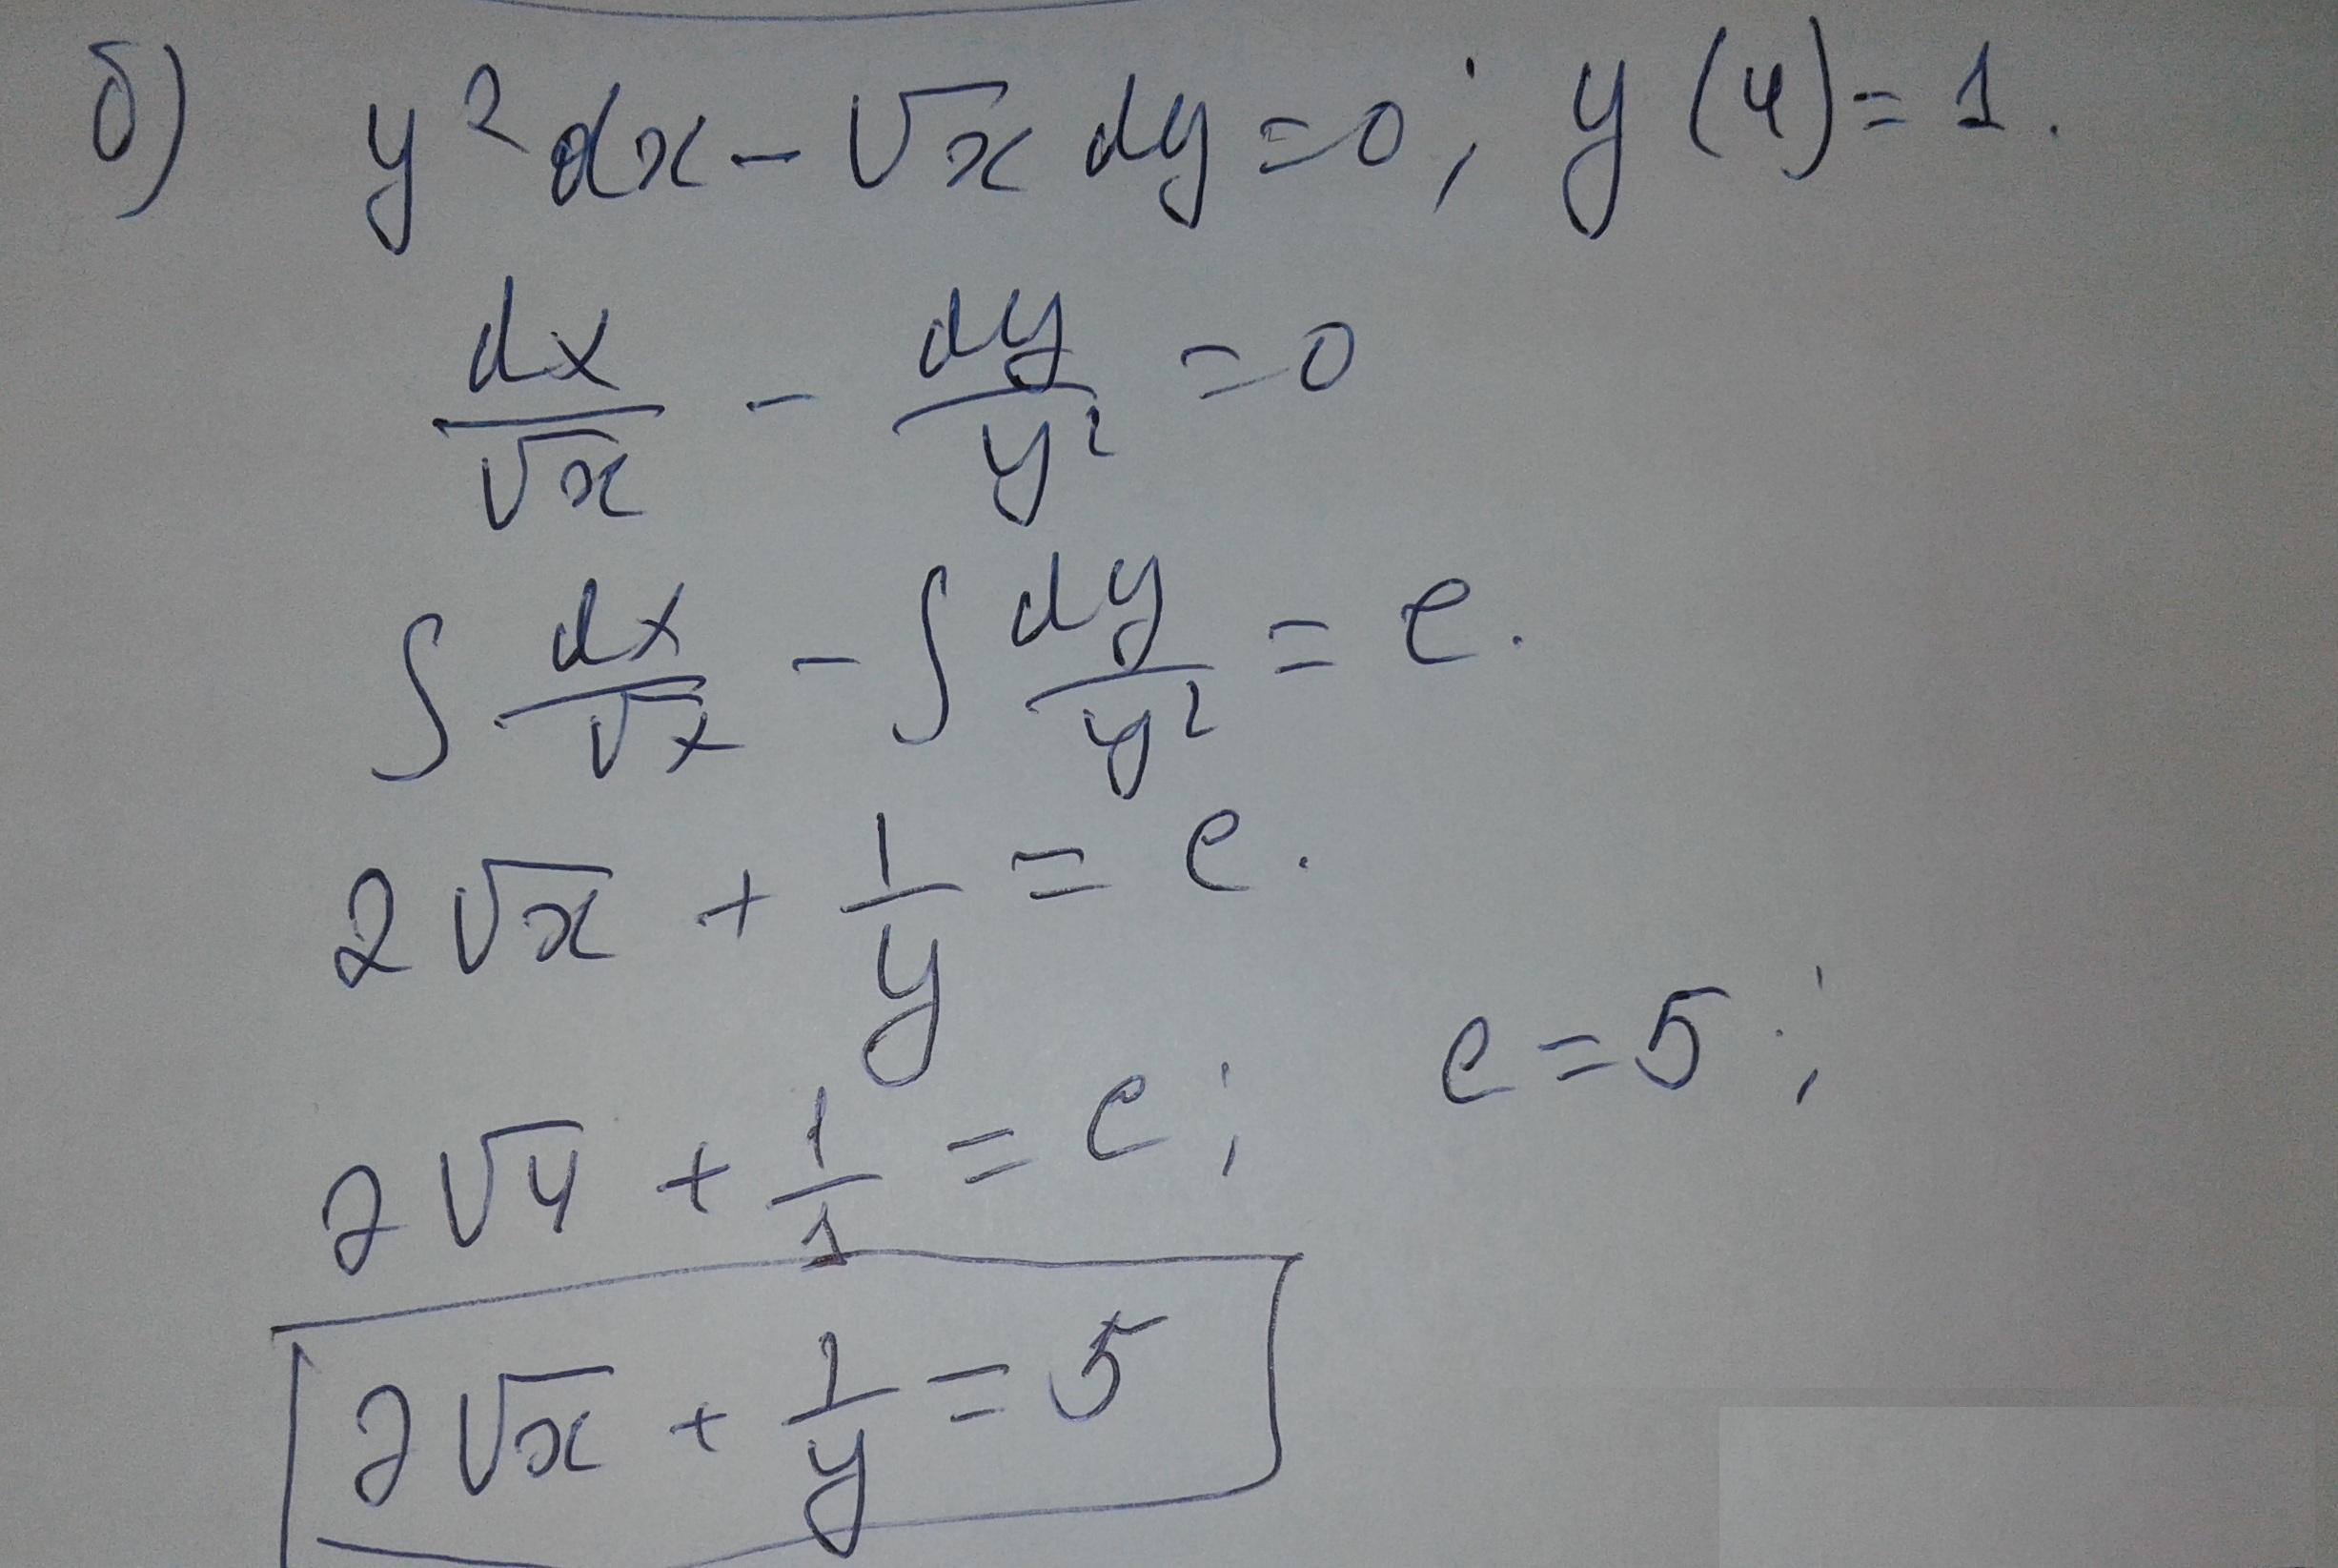 б) y² dx - √x dy = 0; y(4) = 1.
dx/√x - dy/y² = 0
∫ dx/√x - ∫ dy/y² = c.
2√x + 1/y = c.
2√4 + 1/1 = c; c = 5;
2√x + 1/y = 5